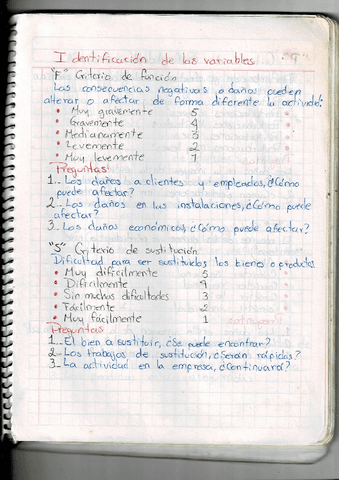 Identificación de las variables
"F" Criterio de función
Las consecuencias negativas o daños pueden
alterar o afectar de forma diferente la actividad:
• Muy gravemente 5
• Gravemente 4
• Medianamente 3
• Levemente 2
• Muy levemente 1
Preguntas:
1._ Los daños a clientes y empleados, ¿Cómo
puede afectar?
2._ Los daños en las instalaciones, ¿Cómo puede
afectar?
3._ Los daños económicos, ¿Cómo puede afectar?
"S" Criterio de sustitución
Dificultad para ser sustituidos los bienes o productos
• Muy dificilmente 5
• Dificilmente 4
• Sin muchas dificultades 3
• Facilmente 2
• Muy fácilmente 1
Preguntas
1._ El bien a sustituir, ¿Se puede encontrar?
2._ Los trabajos de sustitución, ¿Serán rápidos?
3._ La actividad en la empresa, ¿Continuara?